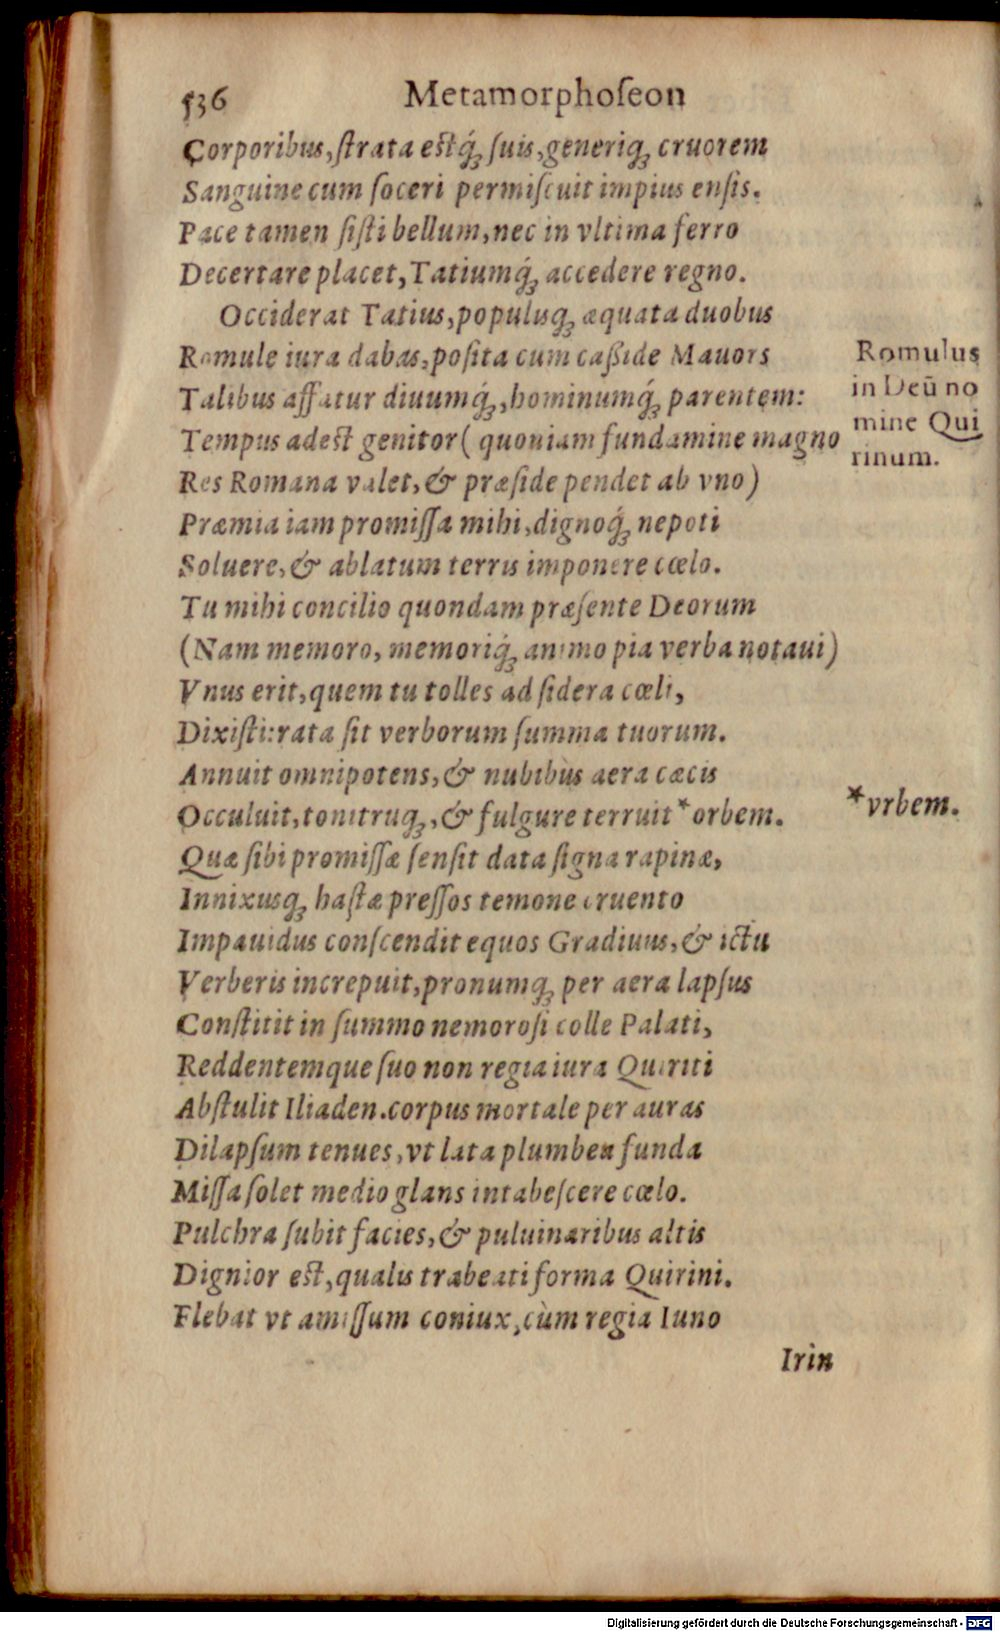 536 Metamorphoſeon
Corporibus, ſtrata eſtq́ꝫ ſuis, generiqꝫ cruorem
Sanguine cum ſoceri permiſcuit impius enſis.
Pace tamen ſiſti bellum, nec in vltima ferro
Decertare placet, Tatiumq́ꝫ accedere regno.
Occiderat Tatius, populusqꝫ æquata duobus
Romule iura dabas, poſita cum caßide Mauors
Talibus affatur diuumq́ꝫ, hominumq́ꝫ parentem:
Tempus adeſt genitor ( quoniam fundamine magno
Res Romana valet, & præſide pendet ab vno)
Præmia iam promiſſa mihi, dignoq́ꝫ nepoti
Soluere, & ablatum terris imponere cœlo.
Tu mihi concilio quondam præſente Deorum
(Nam memoro, memoriq́ꝫ animo pia verba notaui)
Vnus erit, quem tu tolles ad ſidera cœli,
Dixiſti: rata ſit verborum ſumma tuorum.
Annuit omnipotens, & nubibùs aera cæcis
Occuluit, tonitruqꝫ, & fulgure terruit * orbem.
Quæ ſibi promiſſæ ſenſit data ſigna rapinæ,
Innixusqꝫ haſtæ preſſos temone cruento
Impauidus conſcendit equos Gradiuus, & ictu
Verberis increpuit, pronumqꝫ per aera lapſus
Conſtitit in ſummo nemoroſi colle Palati,
Reddentemque ſuo non regia iura Quiriti
Abſtulit Iliaden. corpus mortale per auras
Dilapſum tenues, vt lata plumbea funda
Miſſa ſolet medio glans intabeſcere cœlo.
Pulchra ſubit facies, & puluinaribus altis
Dignior eſt, qualis trabeati forma Quirini.
Flebat vt amiſſum coniux, cùm regia Iuno
Irin
Romulus
in Deū no
mine Qui
rinum.
* vrbem.
Digitalisierung gefördert durch die Deutsche Forschungsgemeinschaft - DFG